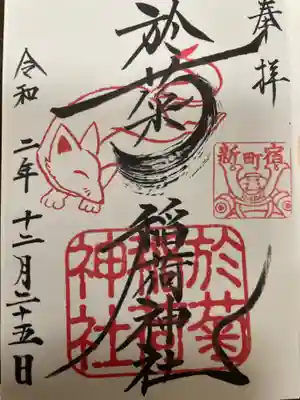 奉拝
於菊
稲荷神社
新町宿
於菊
稲荷
神社
令和二年十二月二十五日